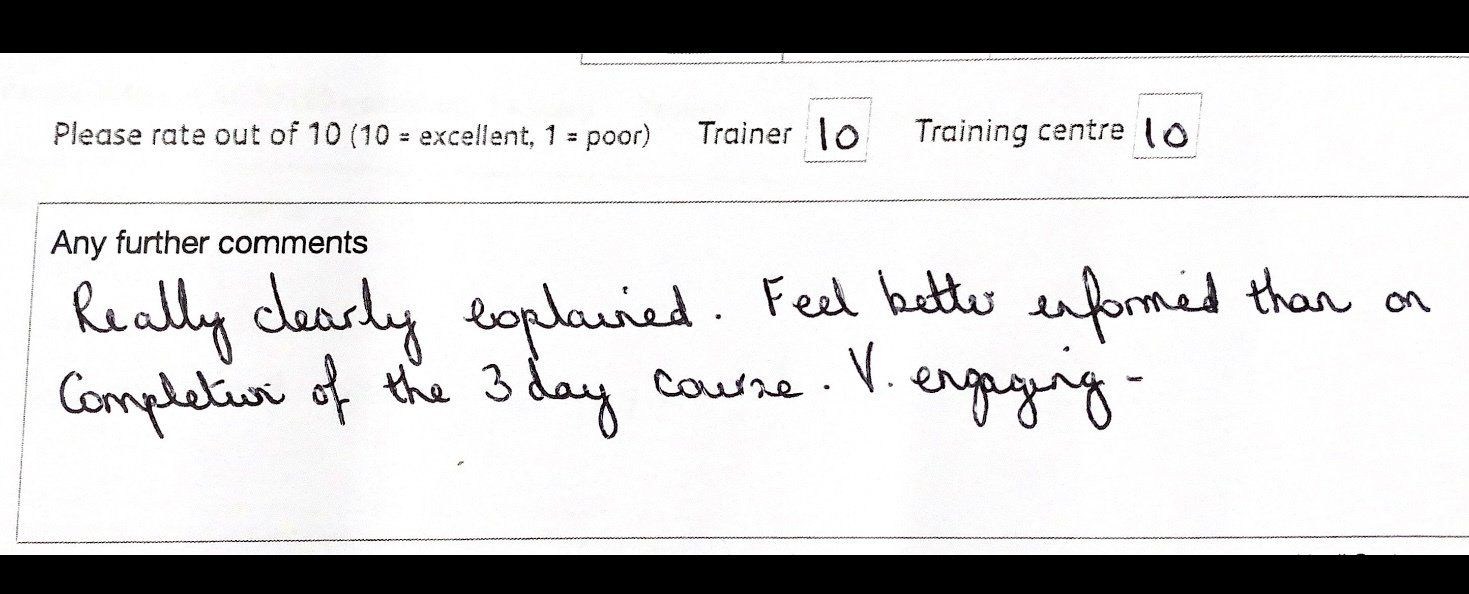 Please rate out of 10 (10 = excellent, 1 = poor) Trainer 10 Training centre 10
Any further comments
Really clearly explained. Feel better informed than on
Completion of the 3 day course. V. engaging -